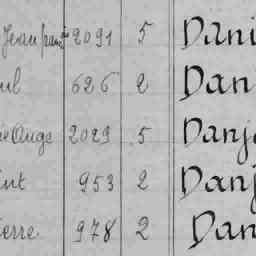 Jean fran 2091 5 Dani
ul 626 2 Dan
ie Ange 2029 5 Danj
int 953 2 Danj
ierre 978 2 Dan